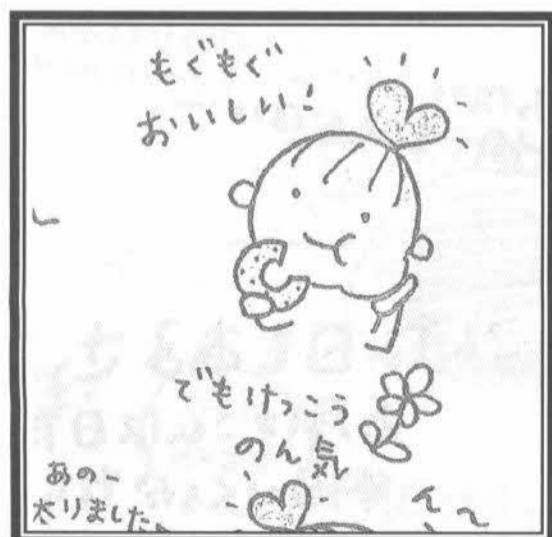 もぐもぐ
おいしい!
でもけっこう
のん気
あのー
太りました